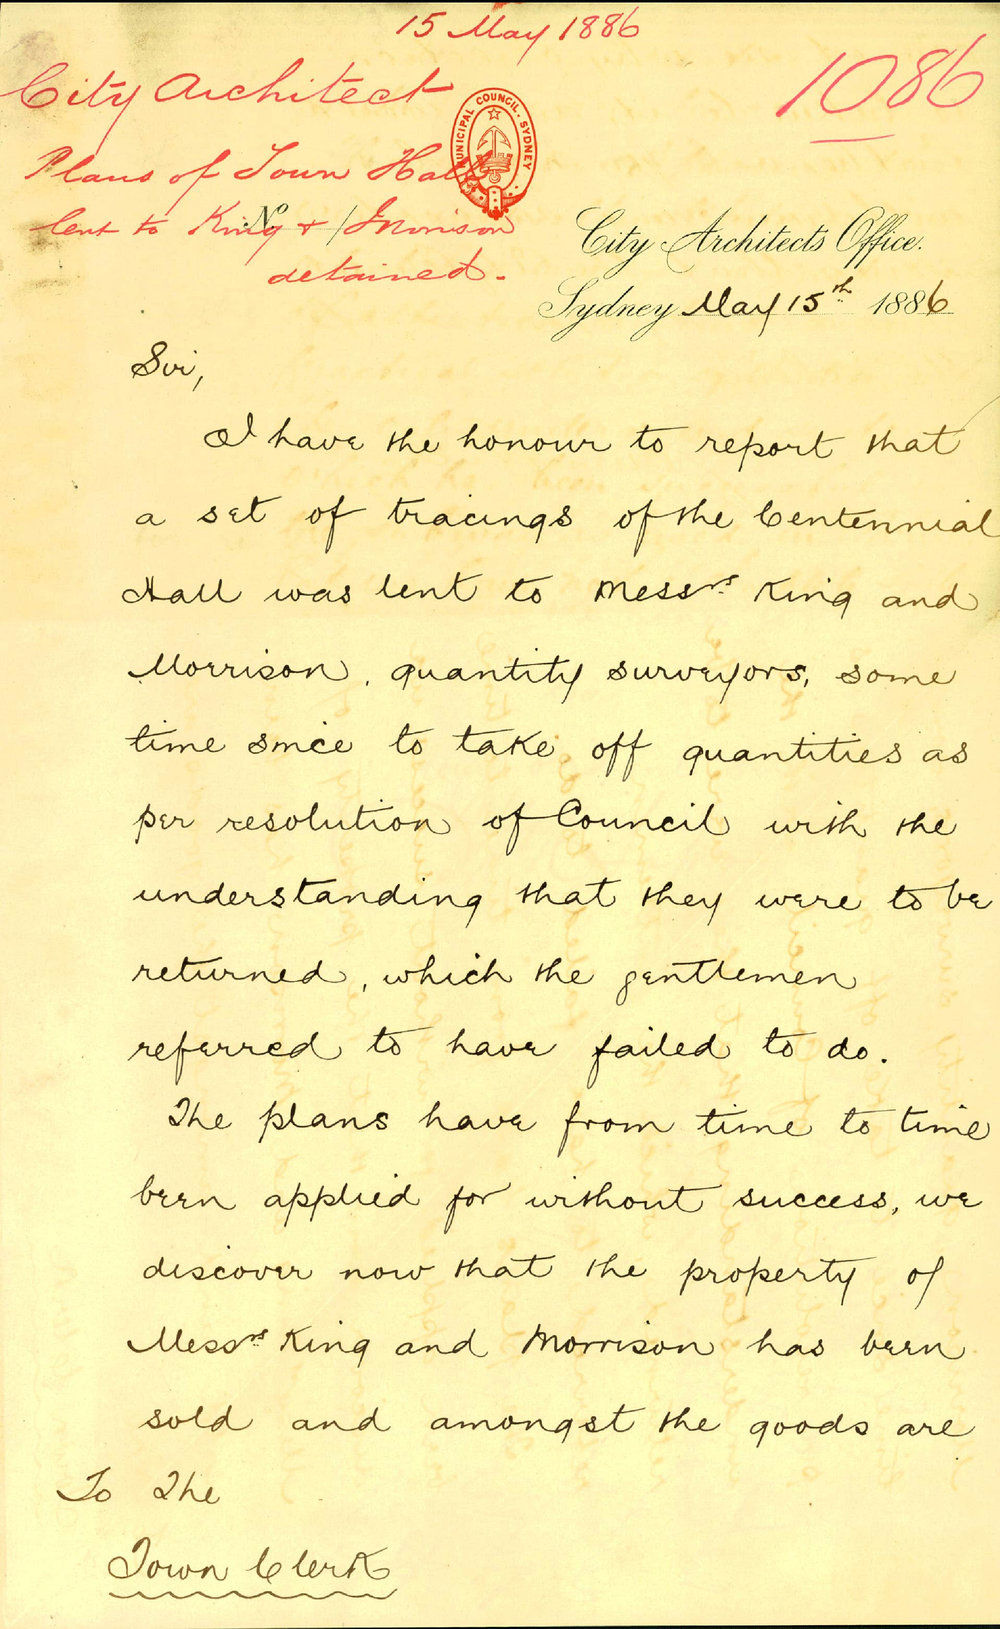 15 May 1886
1086
City Architect
Plans of Town Hall
lent to King & Morrison
detained.
MUNICIPAL COUNCIL. SYDNEY
No
City Architects Office.
Sydney May 15th 1886
Sir,
I have the honour to report that
a set of tracings of the Centennial
Hall was lent to Messrs. King and
Morrison, quantity surveyors, some
time since to take off quantities as
per resolution of Council with the
understanding that they were to be
returned, which the gentlemen
referred to have failed to do.
The plans have from time to time
been applied for without success, we
discover now that the property of
Messrs. King and Morrison has been
sold and amongst the goods are
To The
Town Clerk